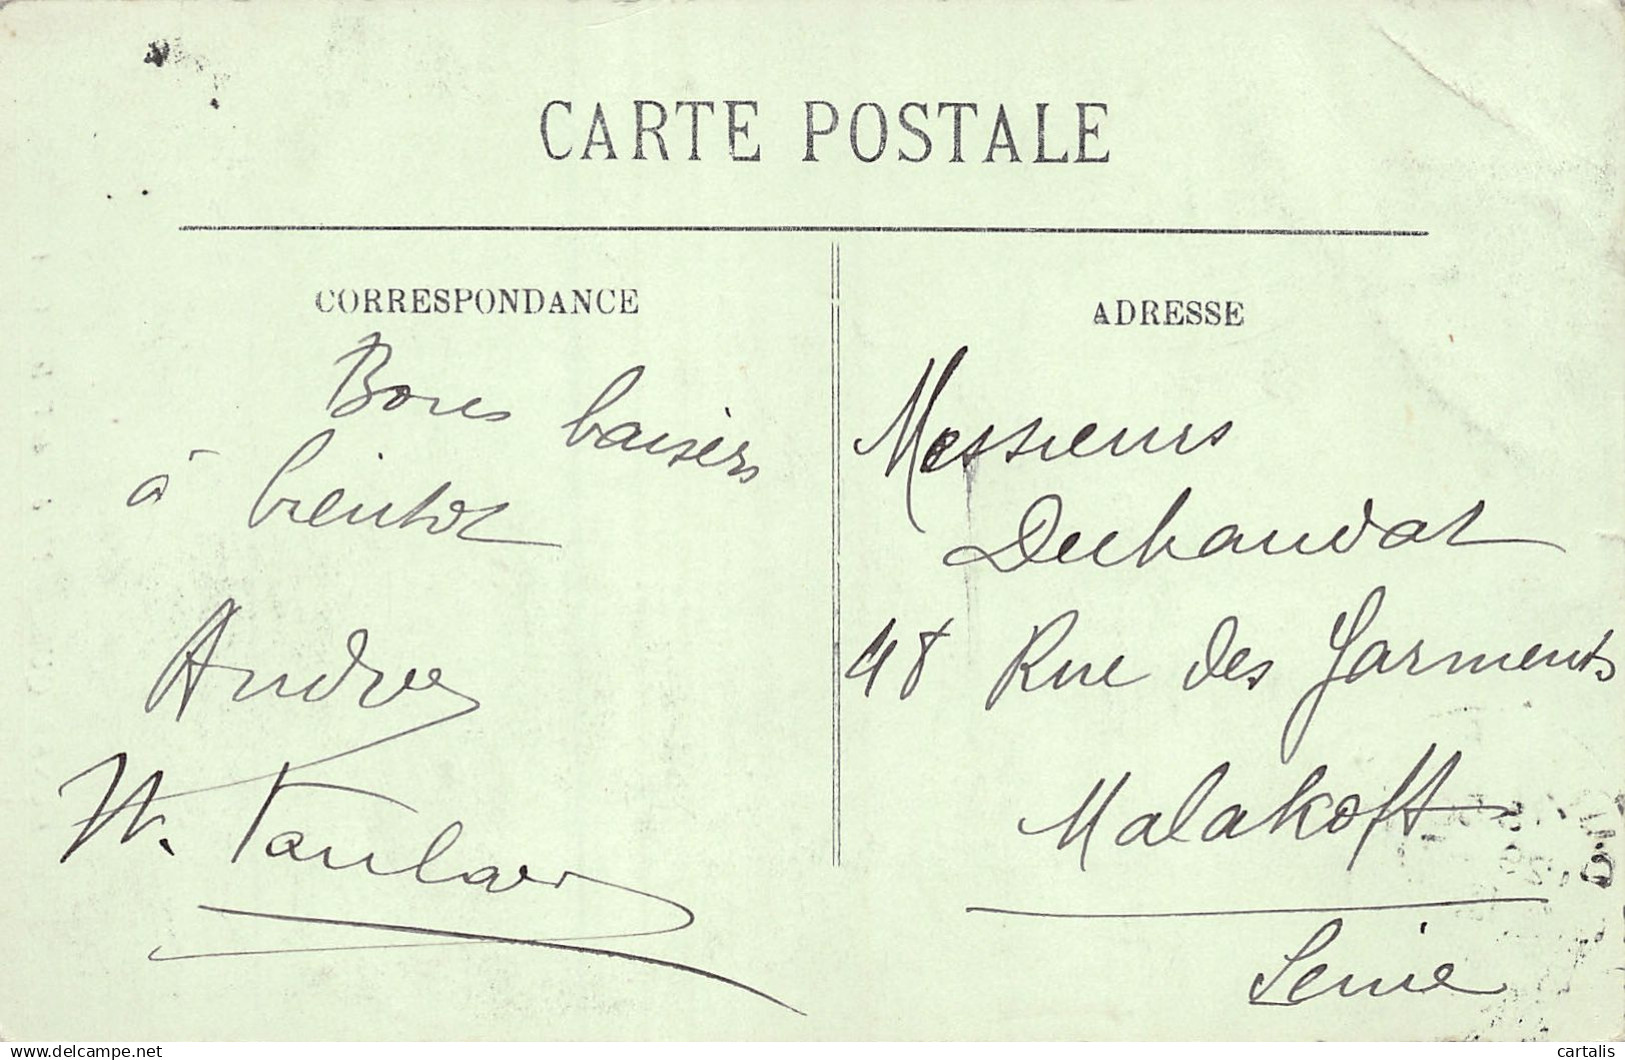 CARTE POSTALE
CORRESPONDANCE
Bons baisers
à bientot
André
ADRESSE
Messieurs
Duchauvat
48 Rue des Garments
Malakoff
Seine
www.delcampe.net
cartalis